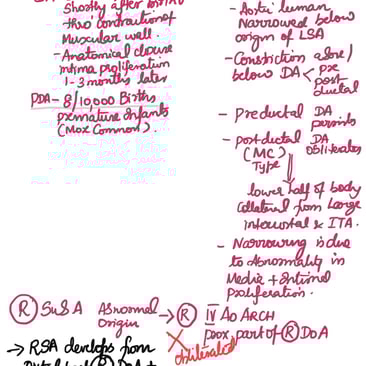 Shortly after birth
thro' contraction of
Muscular wall.
- Anatomical closure
intima proliferation
1-3 months later
PDA - 8/10,000 Births
premature Infants
(Most Common).
- Aortic lumen
Narrowed below
origin of LSA
- Constriction above/
below DA < pre
post
ductal
- Preductal DA
persists
- postductal DA
(MC) obliterates
Type
lower half of body
Collateral from Large
intercostal & ITA.
- Narrowing is due
to Abnormality in
Media + Intimal
Proliferation.
(R) SubA Abnormal → (R) IV Ao ARCH
Origin prox. part of (R) DoA
obliterated
→ RSA develops from